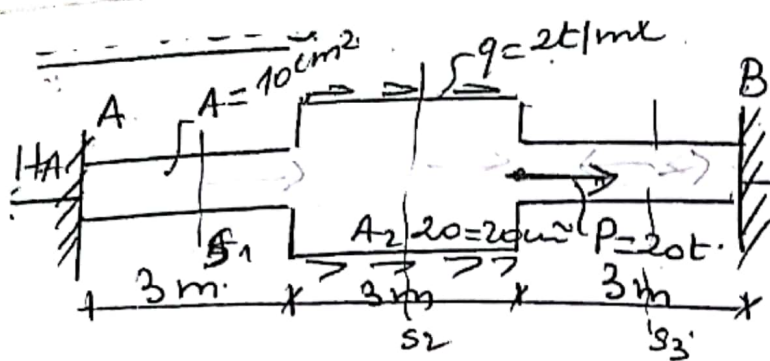 A A = 10cm² q = 2t/ml B
HA
A2 20=20cm² P=20t.
S1
3m. 3m 3m
S2 S3